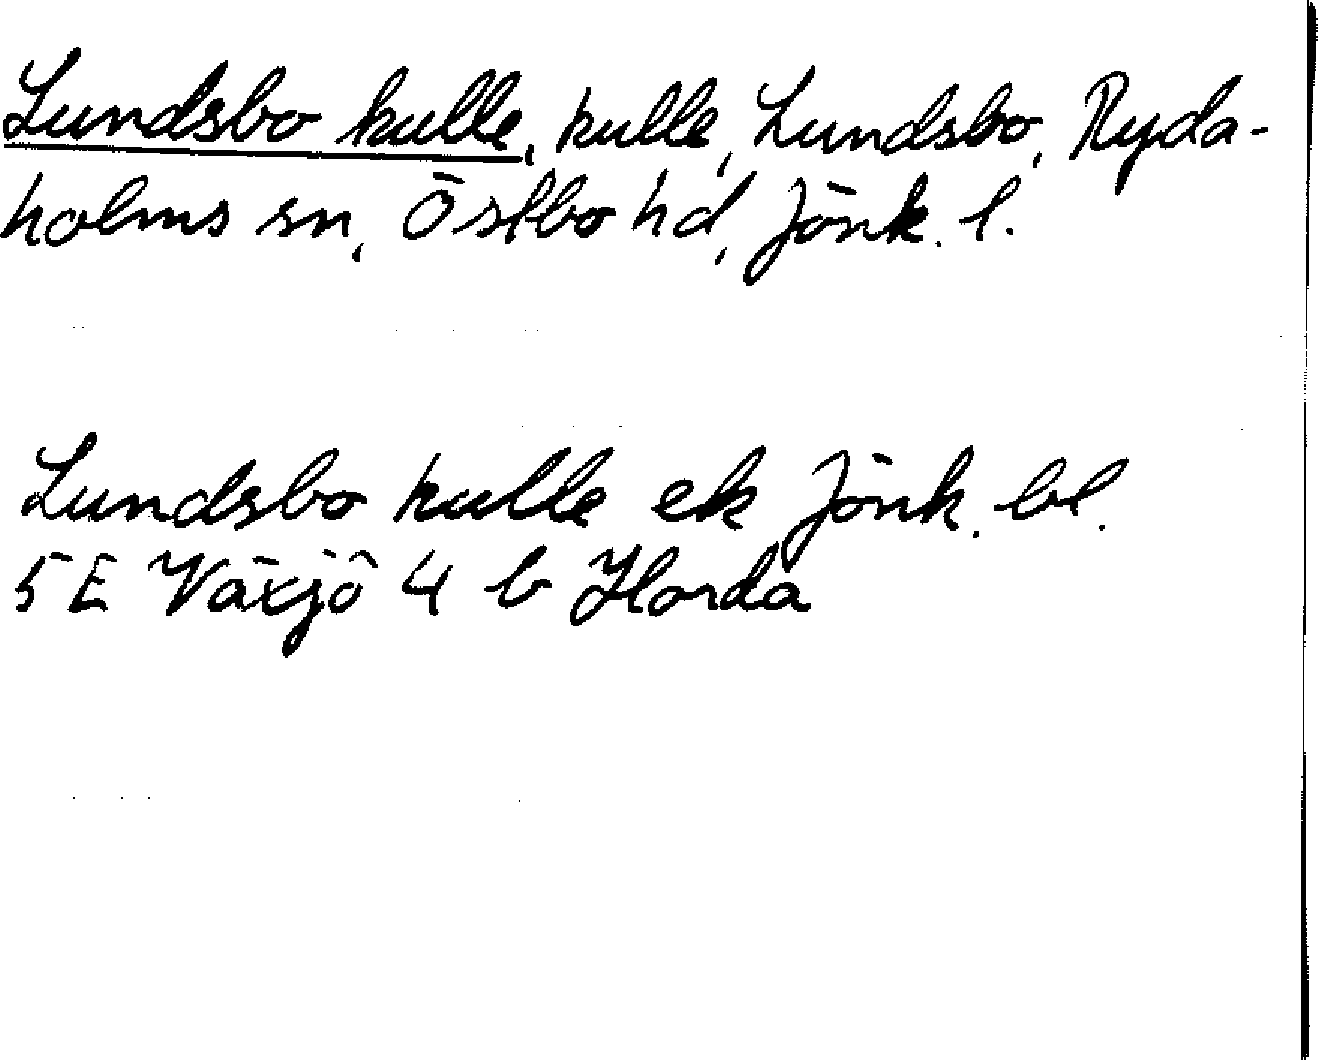 Lundsbo kulle, kulle, Lundsbo, Ryda-
holms sn, Östbo hd, Jönk. l.
Lundsbo kulle ek Jönk. bl.
5E Växjö 4 b Horda